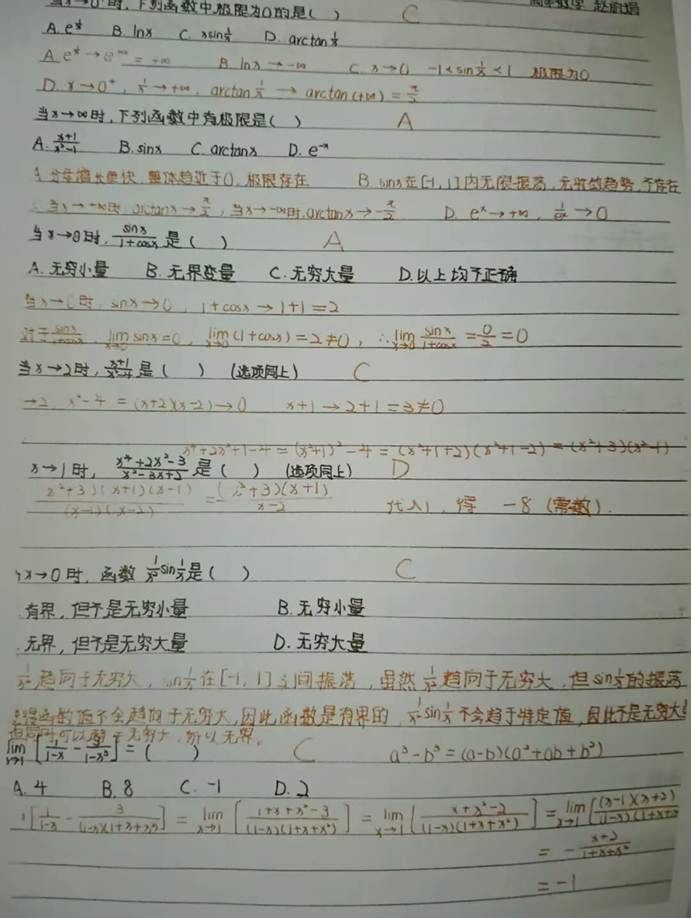 当x→0⁺时,下列函数中极限为0的是( ) C
A. e^{1/x} B. lnx C. xsin1/x D. arctan1/x
A. e^{1/x}→e^{+∞}=+∞ B. lnx→-∞ C. x→0 -1<sin1/x<1 极限为0
D. x→0⁺, 1/x→+∞, arctan1/x→arctan(+∞)=π/2
当x→∞时,下列函数中有极限是( ) A
A. (x+1)/(x²-1) B. sinx C. arctanx D. e^{-x}
分母增长更快,整体趋近于0,极限存在 B sinx在[-1,1]内无限振荡,无收敛趋势,不存在
当x→+∞时,arctanx→π/2,当x→-∞时,arctanx→-π/2 D. e^x→+∞, →0
当x→0时, sinx/(1+cosx)是( ) A
A. 无穷小量 B. 无界变量 C. 无穷大量 D. 以上均不正确
当x→0时, sinx→0, 1+cosx→1+1=2
对于sinx/(1+cosx), lim_{x→0} sinx=0, lim_{x→0}(1+cosx)=2≠0, ∴lim_{x→0} sinx/(1+cosx)=0/2=0
当x→2时, (x+1)/(x²-4)是( ) (选项同上) C
→2 x²-4=(x+2)(x-2)→0 x+1→2+1=3≠0
x⁴+2x²+1-4=(x²+1)²-4=(x²+1+2)(x²+1-2)=(x²+3)(x²-1)
x→1时, (x⁴+2x²-3)/(x²-3x+2)是( ) (选项同上) D
(x²+3)(x+1)(x-1)/(x-1)(x-2)=(x²+3)(x+1)/(x-2) 代入1,得 -8(常数).
x→0时,函数 sin1/x是( ) C
有界,但不是无穷小量 B. 无穷小量
无界,但不是无穷大量 D. 无穷大量
趋向于无穷大, sin1/x在[-1,1]间振荡,虽然 趋向于无穷大,但sin1/x的振荡
函数值不会趋向于无穷大,因此函数是有界的, sin1/x不会趋于特定值,因此不是无穷大
无穷大,所以无界。
lim_{x→1}[1/(1-x)-3/(1-x³)]=( ) C a³-b³=(a-b)(a²+ab+b²)
A. 4 B. 8 C. -1 D. 2
[1/(1-x)-3/(1-x)(1+x+x²)]=lim_{x→1}[(1+x+x²-3)/(1-x)(1+x+x²)]=lim_{x→1}[(x+x²-2)/(1-x)(1+x+x²)]=lim_{x→1}[(x-1)(x+2)/(1-x)(1+x+x²
=-(x+2)/(1+x+x²)
=-1